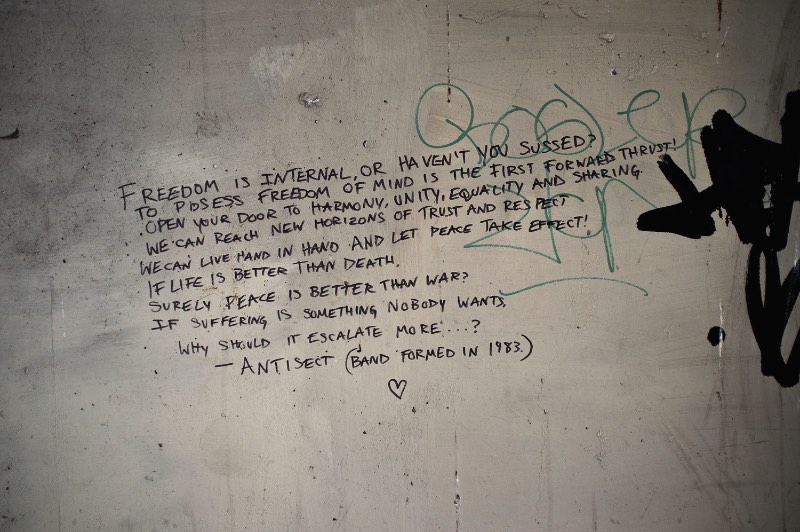 FREEDOM IS INTERNAL, OR HAVEN'T YOU SUSSED?
TO POSESS FREEDOM OF MIND IS THE FIRST FORWARD THRUST!
OPEN YOUR DOOR TO HARMONY, UNITY, EQUALITY AND SHARING.
WE CAN REACH NEW HORIZONS OF TRUST AND RESPECT
WE CAN LIVE HAND IN HAND AND LET PEACE TAKE EFFECT!
IF LIFE IS BETTER THAN DEATH.
SURELY PEACE IS BETTER THAN WAR?
IF SUFFERING IS SOMETHING NOBODY WANTS.
WHY SHOULD IT ESCALATE MORE...?
— ANTISECT (BAND FORMED IN 1983.)